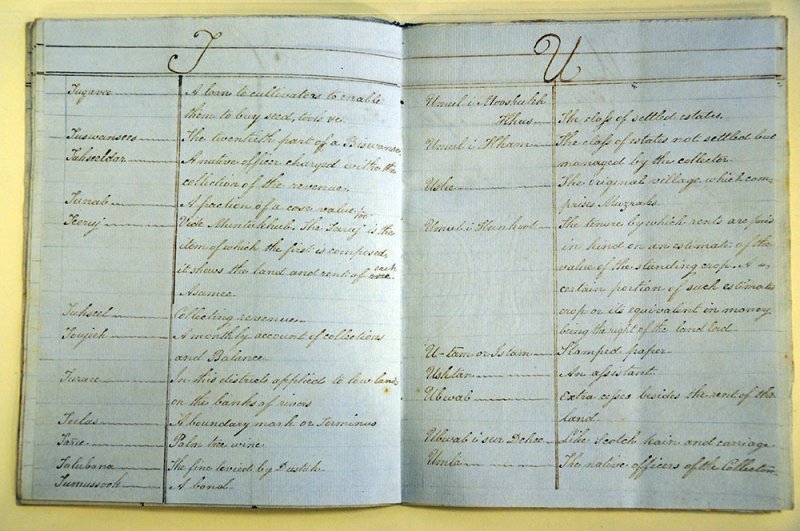 T
Tugavee A loan to cultivators to enable
them to buy seed, tools &c.
Tuswansee The twentieth part of a Biswansee
Tuhseeldar A native officer charged with the
collection of the revenue.
Tunab A fraction of a coss value 1/100
Teerij Vide Muntekhub. The Teerij is the
item of which the first is composed,
it shews the land and rent of each
Asamee
Tuhseel Collecting revenue
Toujeeh A monthly account of collections
and Balance
Turaee In this districts applied to low land
on the banks of rivers
Teelas A boundary mark or Terminus
Taree Palm tree wine
Talubana The fine levied by Dustuk
Tumussook A bond
U
Umul i
Khus The class of settled estates.
Umul i Kham The class of estates not settled but
managed by the collector
Uslee The original village which com-
prises Muzrahs
Umul i The tenure by which rents are paid
in kind on an estimate of the
value of the standing crop. A
certain portion of such estimated
crop or its equivalent in money
being the right of the land lord
U-tam or Istam Stamped paper
Ushtan An assistant
Ubwab Extra cesses besides the rent of the
land
Ubwab i sur Like Scotch kain and carriage
Umla The native officers of the Collector